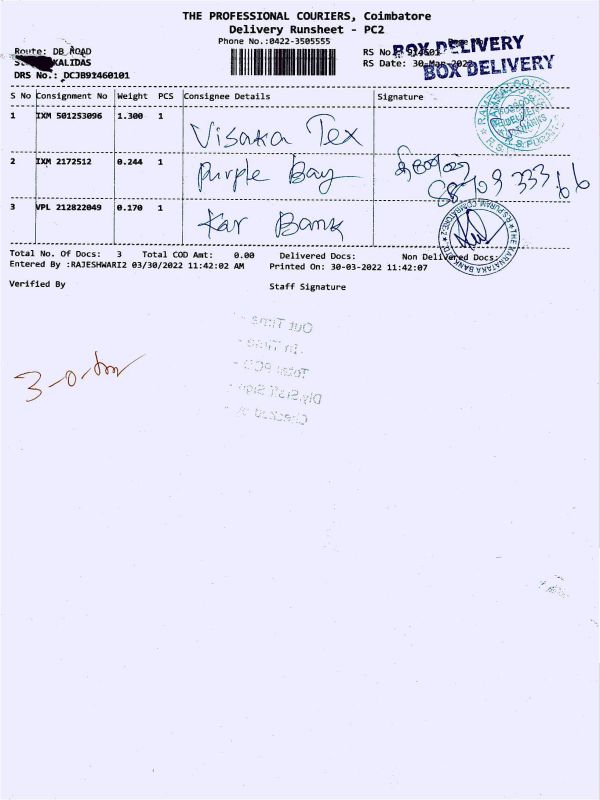 THE PROFESSIONAL COURIERS, Coimbatore
Delivery Runsheet - PC2
Phone No.:0422-3505555
Route: DB ROAD
KALIDAS
DRS No.: DCJB91460101
RS No.:
RS Date: 30-Mar-2022
BOX DELIVERY
BOX DELIVERY
S No Consignment No Weight PCS Consignee Details Signature
1 IXM 501253096 1.300 1 Visaka Tex
2 IXM 2172512 0.244 1 Purple Bay
3 VPL 212822049 0.170 1 Kar Bank
Total No. Of Docs: 3 Total COD Amt: 0.00 Delivered Docs: Non Delivered Docs:
Entered By :RAJESHWARI2 03/30/2022 11:42:02 AM Printed On: 30-03-2022 11:42:07
Verified By Staff Signature
Out Time -
In Time -
Total POD -